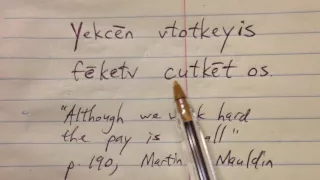 Yekcēn vtotkeyis
fēketv cutkēt os.
"Although we work hard
the pay is
p. 190, Martin Mauldin